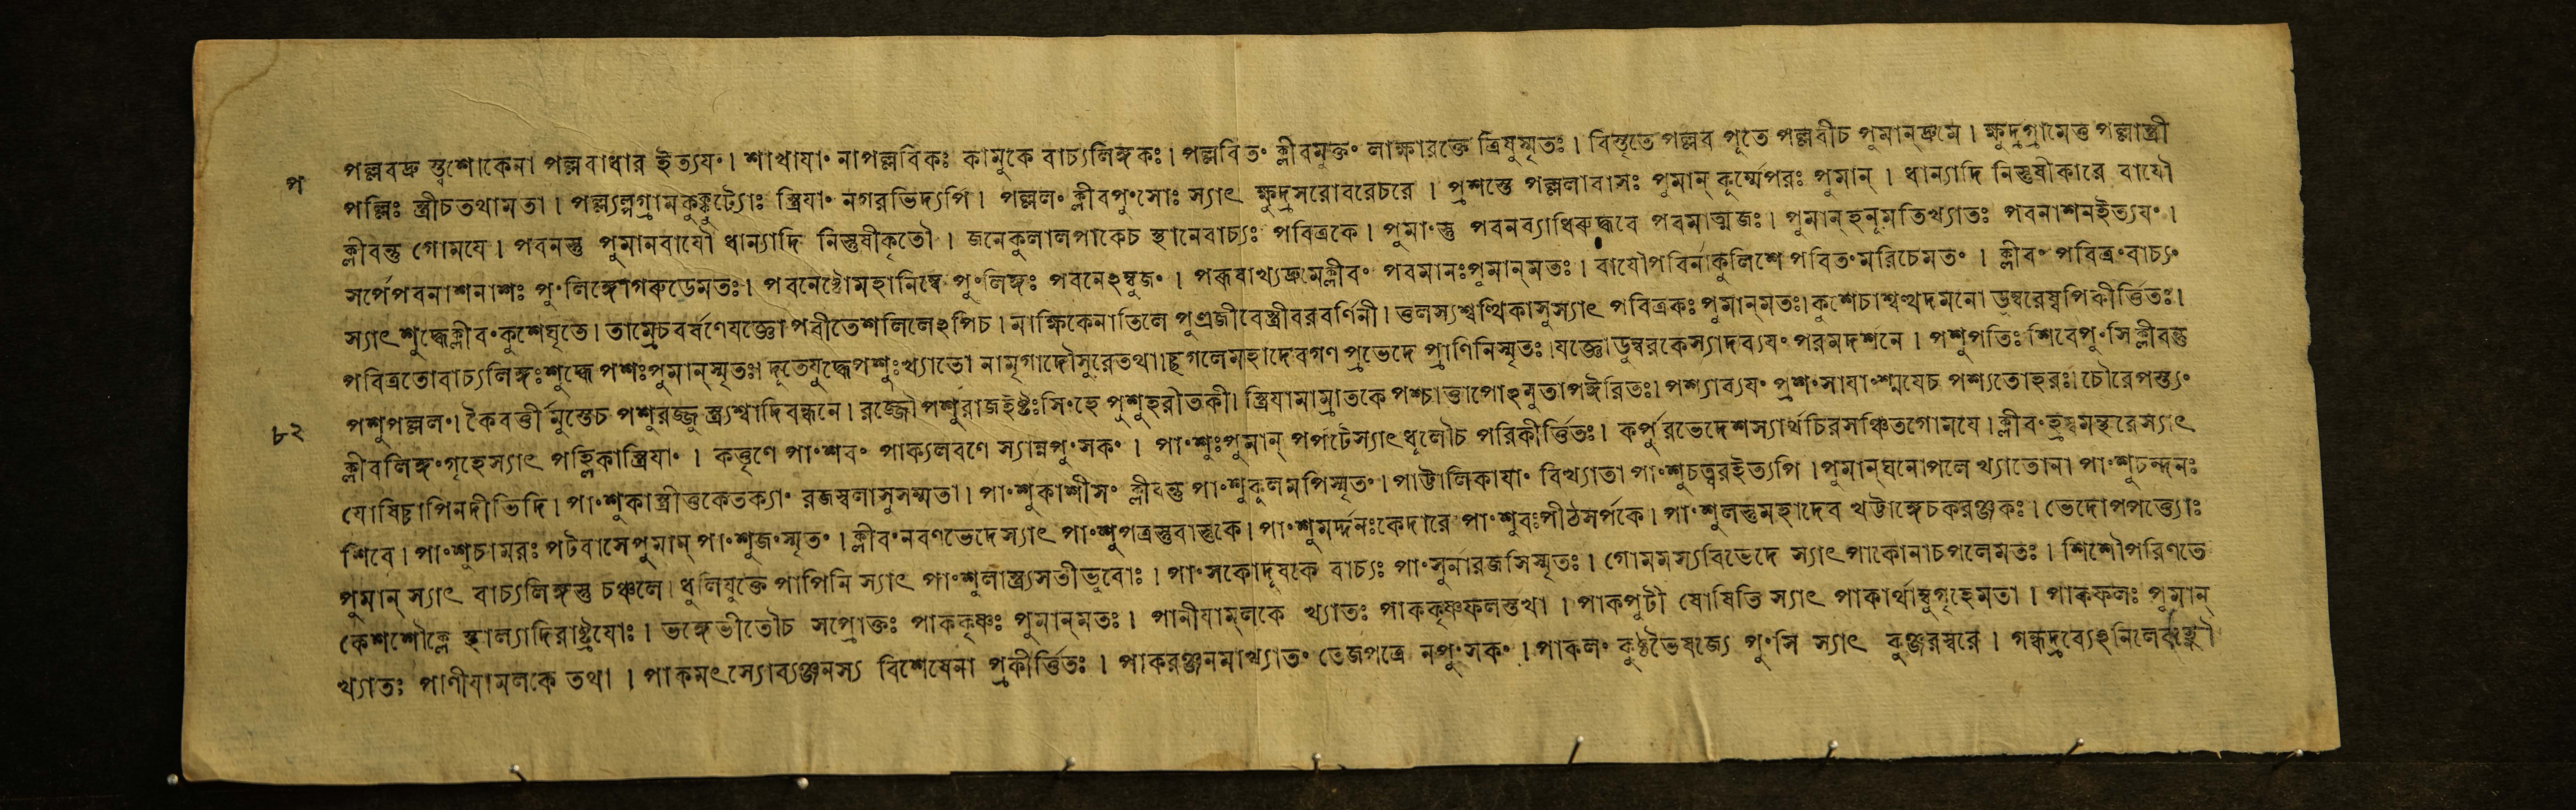 পল্লবদ্রু স্ত্বশোকেনা পল্লবাধার ইত্যয॰। শাখাযা॰ নাপল্লবিকঃ কামুকে বাচ্যলিঙ্গকঃ। পল্লবিত॰ ক্লীবমুক্ত॰ লাক্ষারক্তে ত্রিষুস্মৃতঃ। বিস্তৃতে পল্লব পূতে পল্লবীচ পুমান্দ্রুমে। ক্ষুদ্রগ্রামেত্ত পল্লাস্ত্রী
প পল্লিঃ স্ত্রীচতথামতা। পল্ল্যল্পগ্রামকুক্কুট্যোঃ স্ত্রিযা॰ নগরভিদ্যপি। পল্লল॰ ক্লীবপু॰সোঃ স্যাৎ ক্ষুদ্রসরোবরেচরে। প্রশস্তে পল্ললাবাসঃ পুমান্ কূর্ম্মেপরঃ পুমান্। ধান্যাদি নিস্তুষীকারে বাযৌ
ক্লীবন্তু গোমযে। পবনস্তু পুমানবাযৌ ধান্যাদি নিস্তুষীকৃতৌ। জনেকুলালপাকেচ স্থানেবাচ্যঃ পবিত্রকে। পুমা॰স্তু পবনব্যাধিরুদ্ধবে পবমাত্মজঃ। পুমান্হনূমতিখ্যাতঃ পবনাশনইত্যয॰।
সর্পেপবনাশনাশঃ পু॰লিঙ্গোগরুডেমতঃ। পবনেষ্টোমহানিম্বে পু॰লিঙ্গঃ পবনেঽম্বুজ॰। পরূষাখ্যদ্রুমেক্লীব॰ পবমানঃপুমান্মতঃ। বাযৌপবির্নাকুলিশে পবিত॰মরিচেমত॰। ক্লীব॰ পবিত্র॰বাচ্য॰
স্যাৎশুদ্ধেক্লীব॰কুশেঘৃতে। তাম্রেচবর্ষণেযজ্ঞো পবীতেশলিলেঽপিচ। মাক্ষিকেনাতিলে পুণ্রজীবেস্ত্রীবরবর্ণিনী। ত্তলস্যশ্বত্থিকাসুস্যাৎ পবিত্রকঃপুমান্মতঃ।কুশেচাশ্বত্থদমনো ডুম্বরেষ্বপিকীর্ত্তিতঃ।
পবিত্রতোবাচ্যলিঙ্গঃশুদ্ধে পশঃপুমান্স্মৃতঃ। দূতেযুদ্ধেপশুঃখ্যাতো নামৃগাদৌসুরেতথা।ছগলেমহাদেবগণ প্রভেদে প্রাণিনিস্মৃতঃ।যজ্ঞোডুম্বরকেস্যাদব্যয॰ পরমদর্শনে। পশুপতিঃ শিবেপু॰সিক্লীবন্তু
পশুপল্লল॰। কৈবর্ত্তী মুস্তেচ পশুরজ্জু স্ত্র্যশ্বাদিবন্ধনে। রজ্জৌপশুরাজইষ্টঃসি॰হে পুশুহরীতকী। স্ত্রিযামাম্রাতকে পশ্চাত্তাপোঽনুতাপঈরিতঃ। পশ্যাব্যয॰ প্রশ॰সাযা॰শ্মযেচ পশ্যতোহরঃ। চৌরেপস্ত্য॰
৮২ ক্লীবলিঙ্গ॰গৃহেস্যাৎ পহ্লিকাস্ত্রিযা॰। কত্তৃণে পা॰শব॰ পাক্যলবণে স্যান্নপু॰সক॰। পা॰শুঃপুমান্ পর্পটেস্যাৎধূলৌচ পরিকীর্ত্তিতঃ। কর্পুরভেদেশস্যার্থচিরসঞ্চিতগোমযে। ক্লীব॰হ্রস্বমন্থরেস্যাৎ
যোষিচ্চাপিনদীভিদি। পা॰শুকাস্ত্রীত্তকেতক্যা॰ রজস্বলাসুসম্মতা। পা॰শুকাশীস॰ ক্লীবন্তু পা॰শুকূলমপিস্মৃত॰। পাট্টালিকাযা॰ বিখ্যাতা পা॰শুচত্ত্বরইত্যপি। পুমান্ঘনোপলে খ্যাতোনা পা॰শুচন্দনঃ
শিবে। পা॰শুচামরঃ পটবাসেপুমান্ পা॰শুজ॰স্মৃত॰। ক্লীব॰নবণভেদেস্যাৎ পা॰শুপত্রস্তুবাস্তুকে। পা॰শুমর্দ্দনঃকেদারে পা॰শুবঃপীঠসর্পকে। পা॰শুলস্তুমহাদেব খট্টাঙ্গেচকরঞ্জকঃ। ভেদোপপত্ত্যোঃ
পুমান্ স্যাৎ বাচ্যলিঙ্গস্তু চঞ্চলে। ধুলিযুক্তে পাপিনি স্যাৎ পা॰শুলাস্ত্র্যসতীভুবোঃ। পা॰সকোদূষকে বাচ্যঃ পা॰সুর্নারজসিস্মৃতঃ। গোমমস্যবিভেদে স্যাৎ পাকোনাচপলেমতঃ। শিশৌপরিণতে
কেশশৌক্লে স্থাল্যাদিরাষ্ট্রযোঃ। ভঙ্গেভীতৌচ সপ্রোক্তঃ পাককৃষ্ণঃ পুমান্মতঃ। পানীযাম্লকে খ্যাতঃ পাককৃষ্ণফলস্তথা। পাকপুটী যোষিতি স্যাৎ পাকার্থাম্বুগৃহেমতা। পাকফলঃ পুমান্
খ্যাতঃ পাণীযামলকে তথা। পাকমৎস্যোব্যঞ্জনস্য বিশেষেনা প্রকীর্ত্তিতঃ। পাকরঞ্জনমাখ্যাত॰ তেজপত্রে নপু॰সক॰। পাকল॰ কুষ্ঠভৈষজ্যে পু॰সি স্যাৎ কুঞ্জরস্বরে। গন্ধদ্রব্যেঽনিলেবহ্নৌ